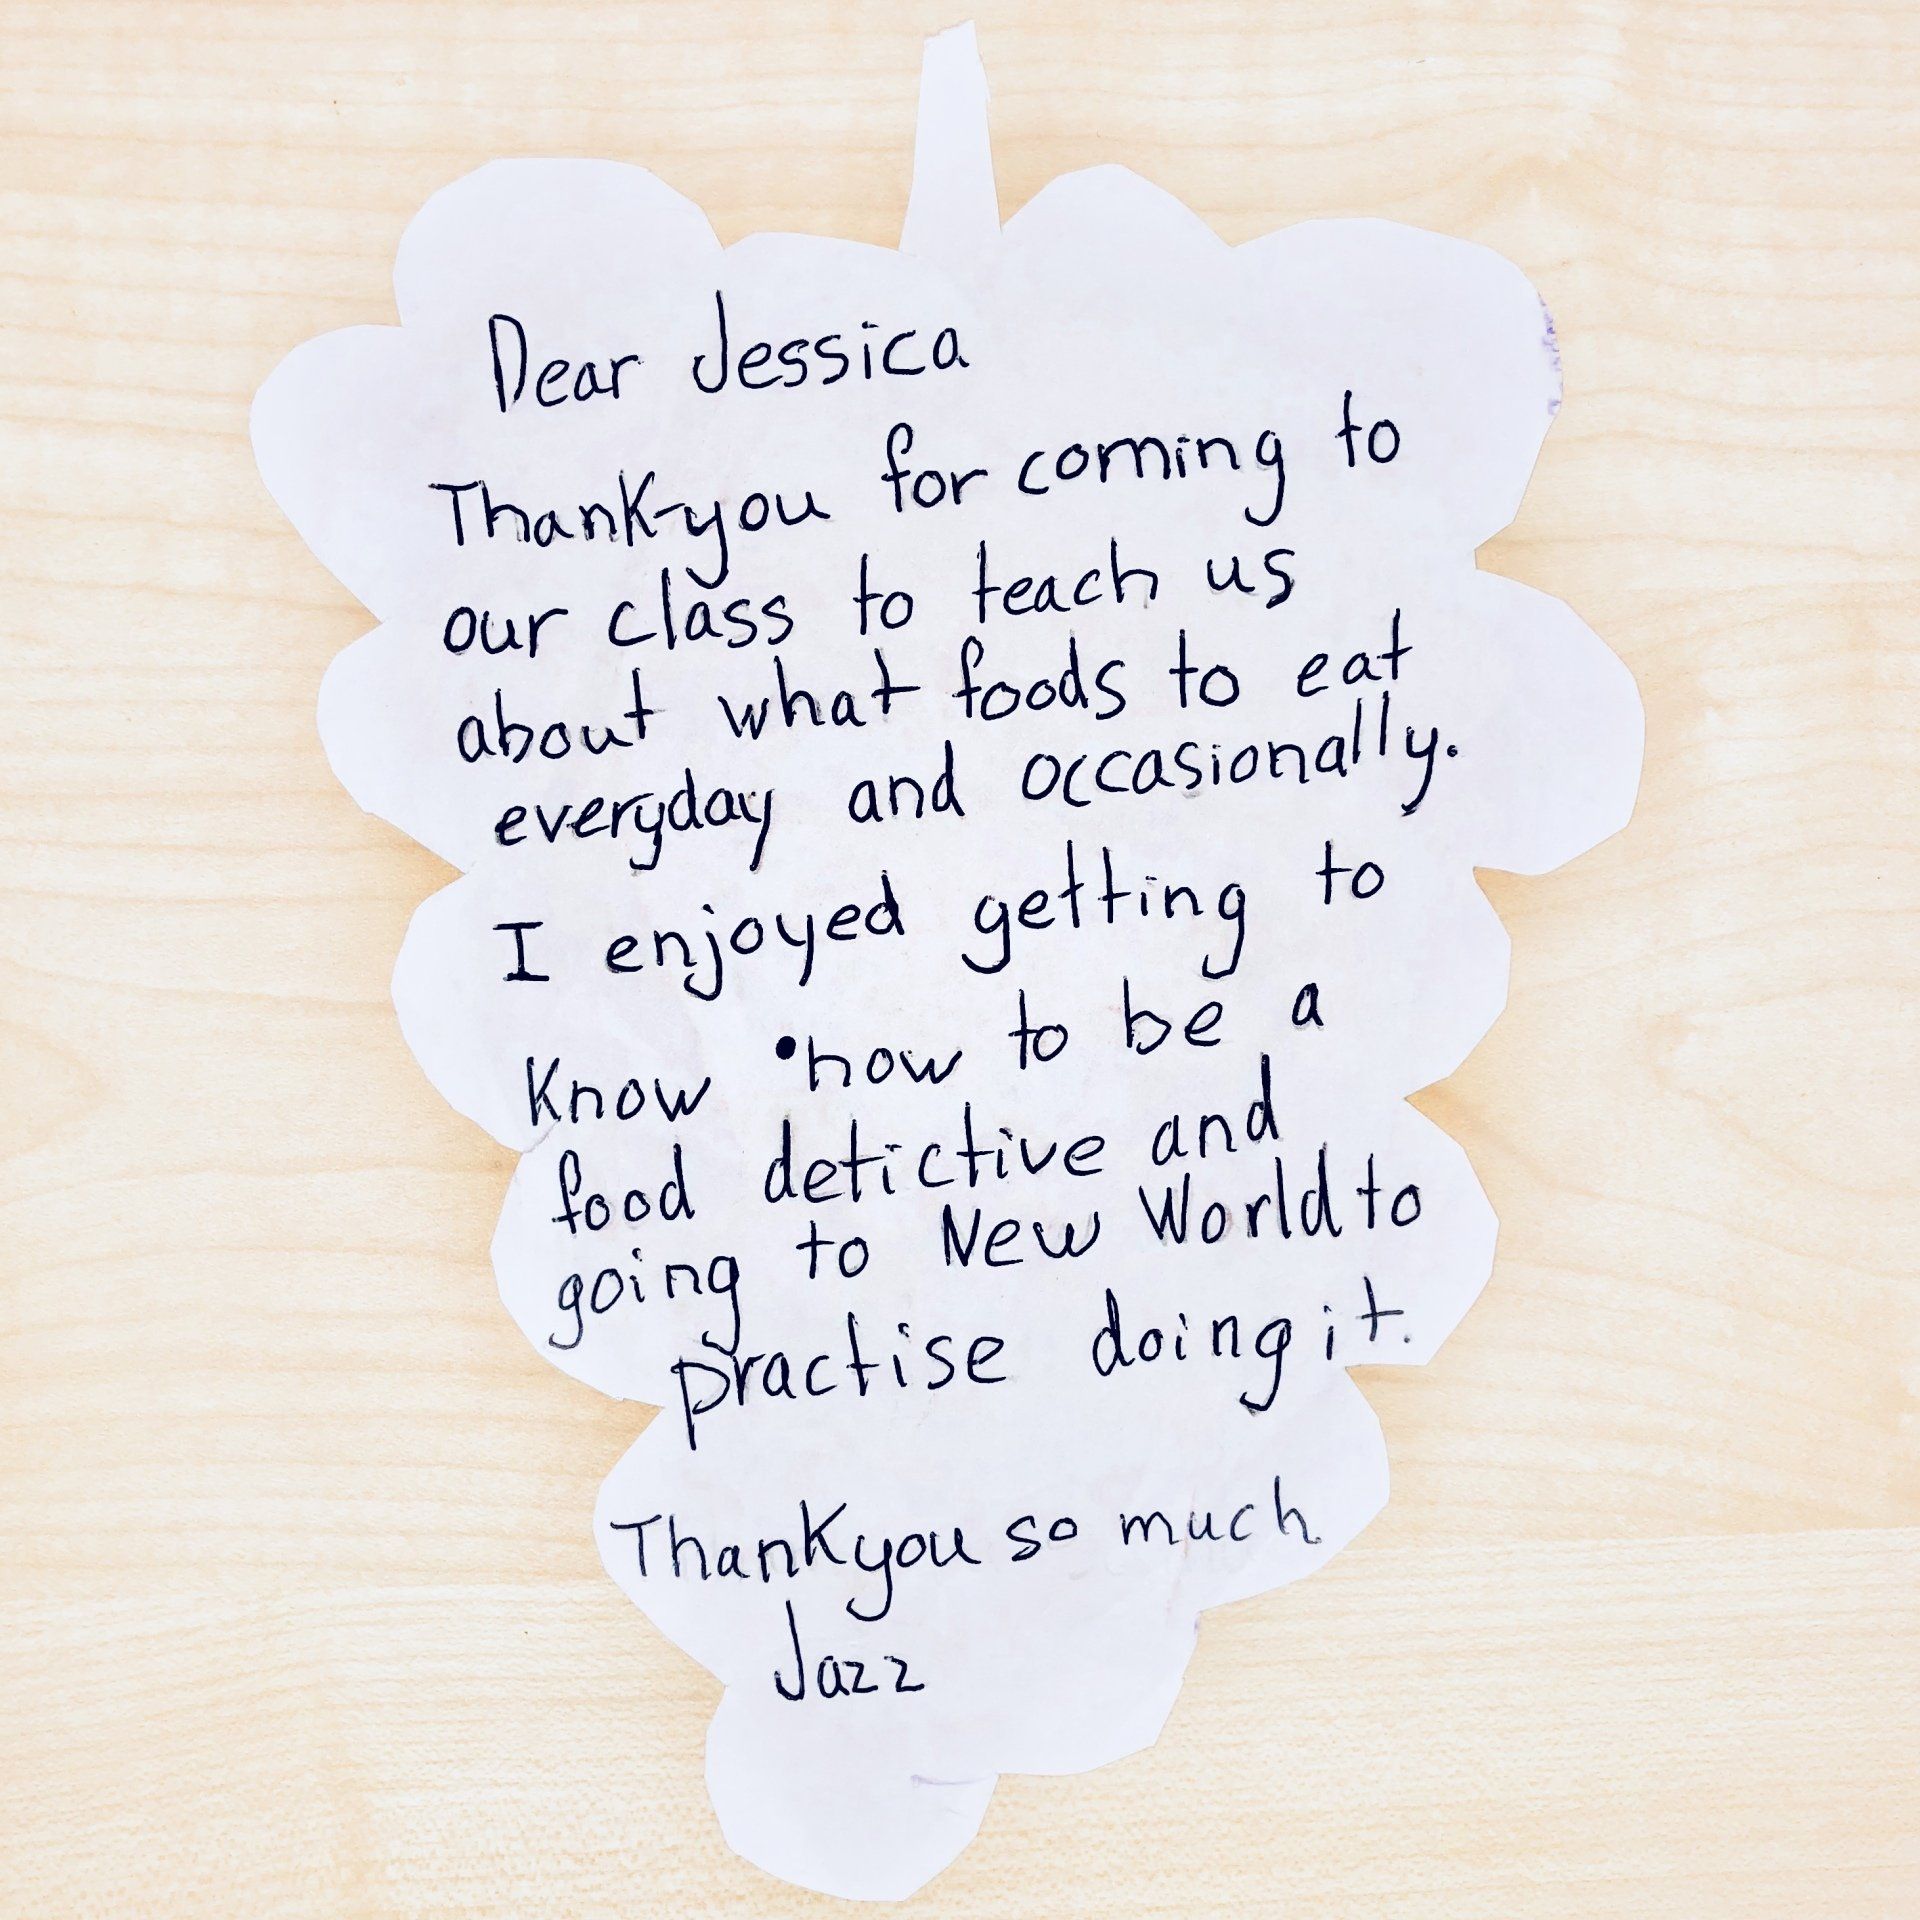 Dear Jessica
Thank-you for coming to
our class to teach us
about what foods to eat
everyday and occasionally.
I enjoyed getting to
Know how to be a
food detictive and
going to New World to
practise doing it.
Thankyou so much
Jazz